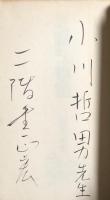 小川哲男先生
二階堂正宏